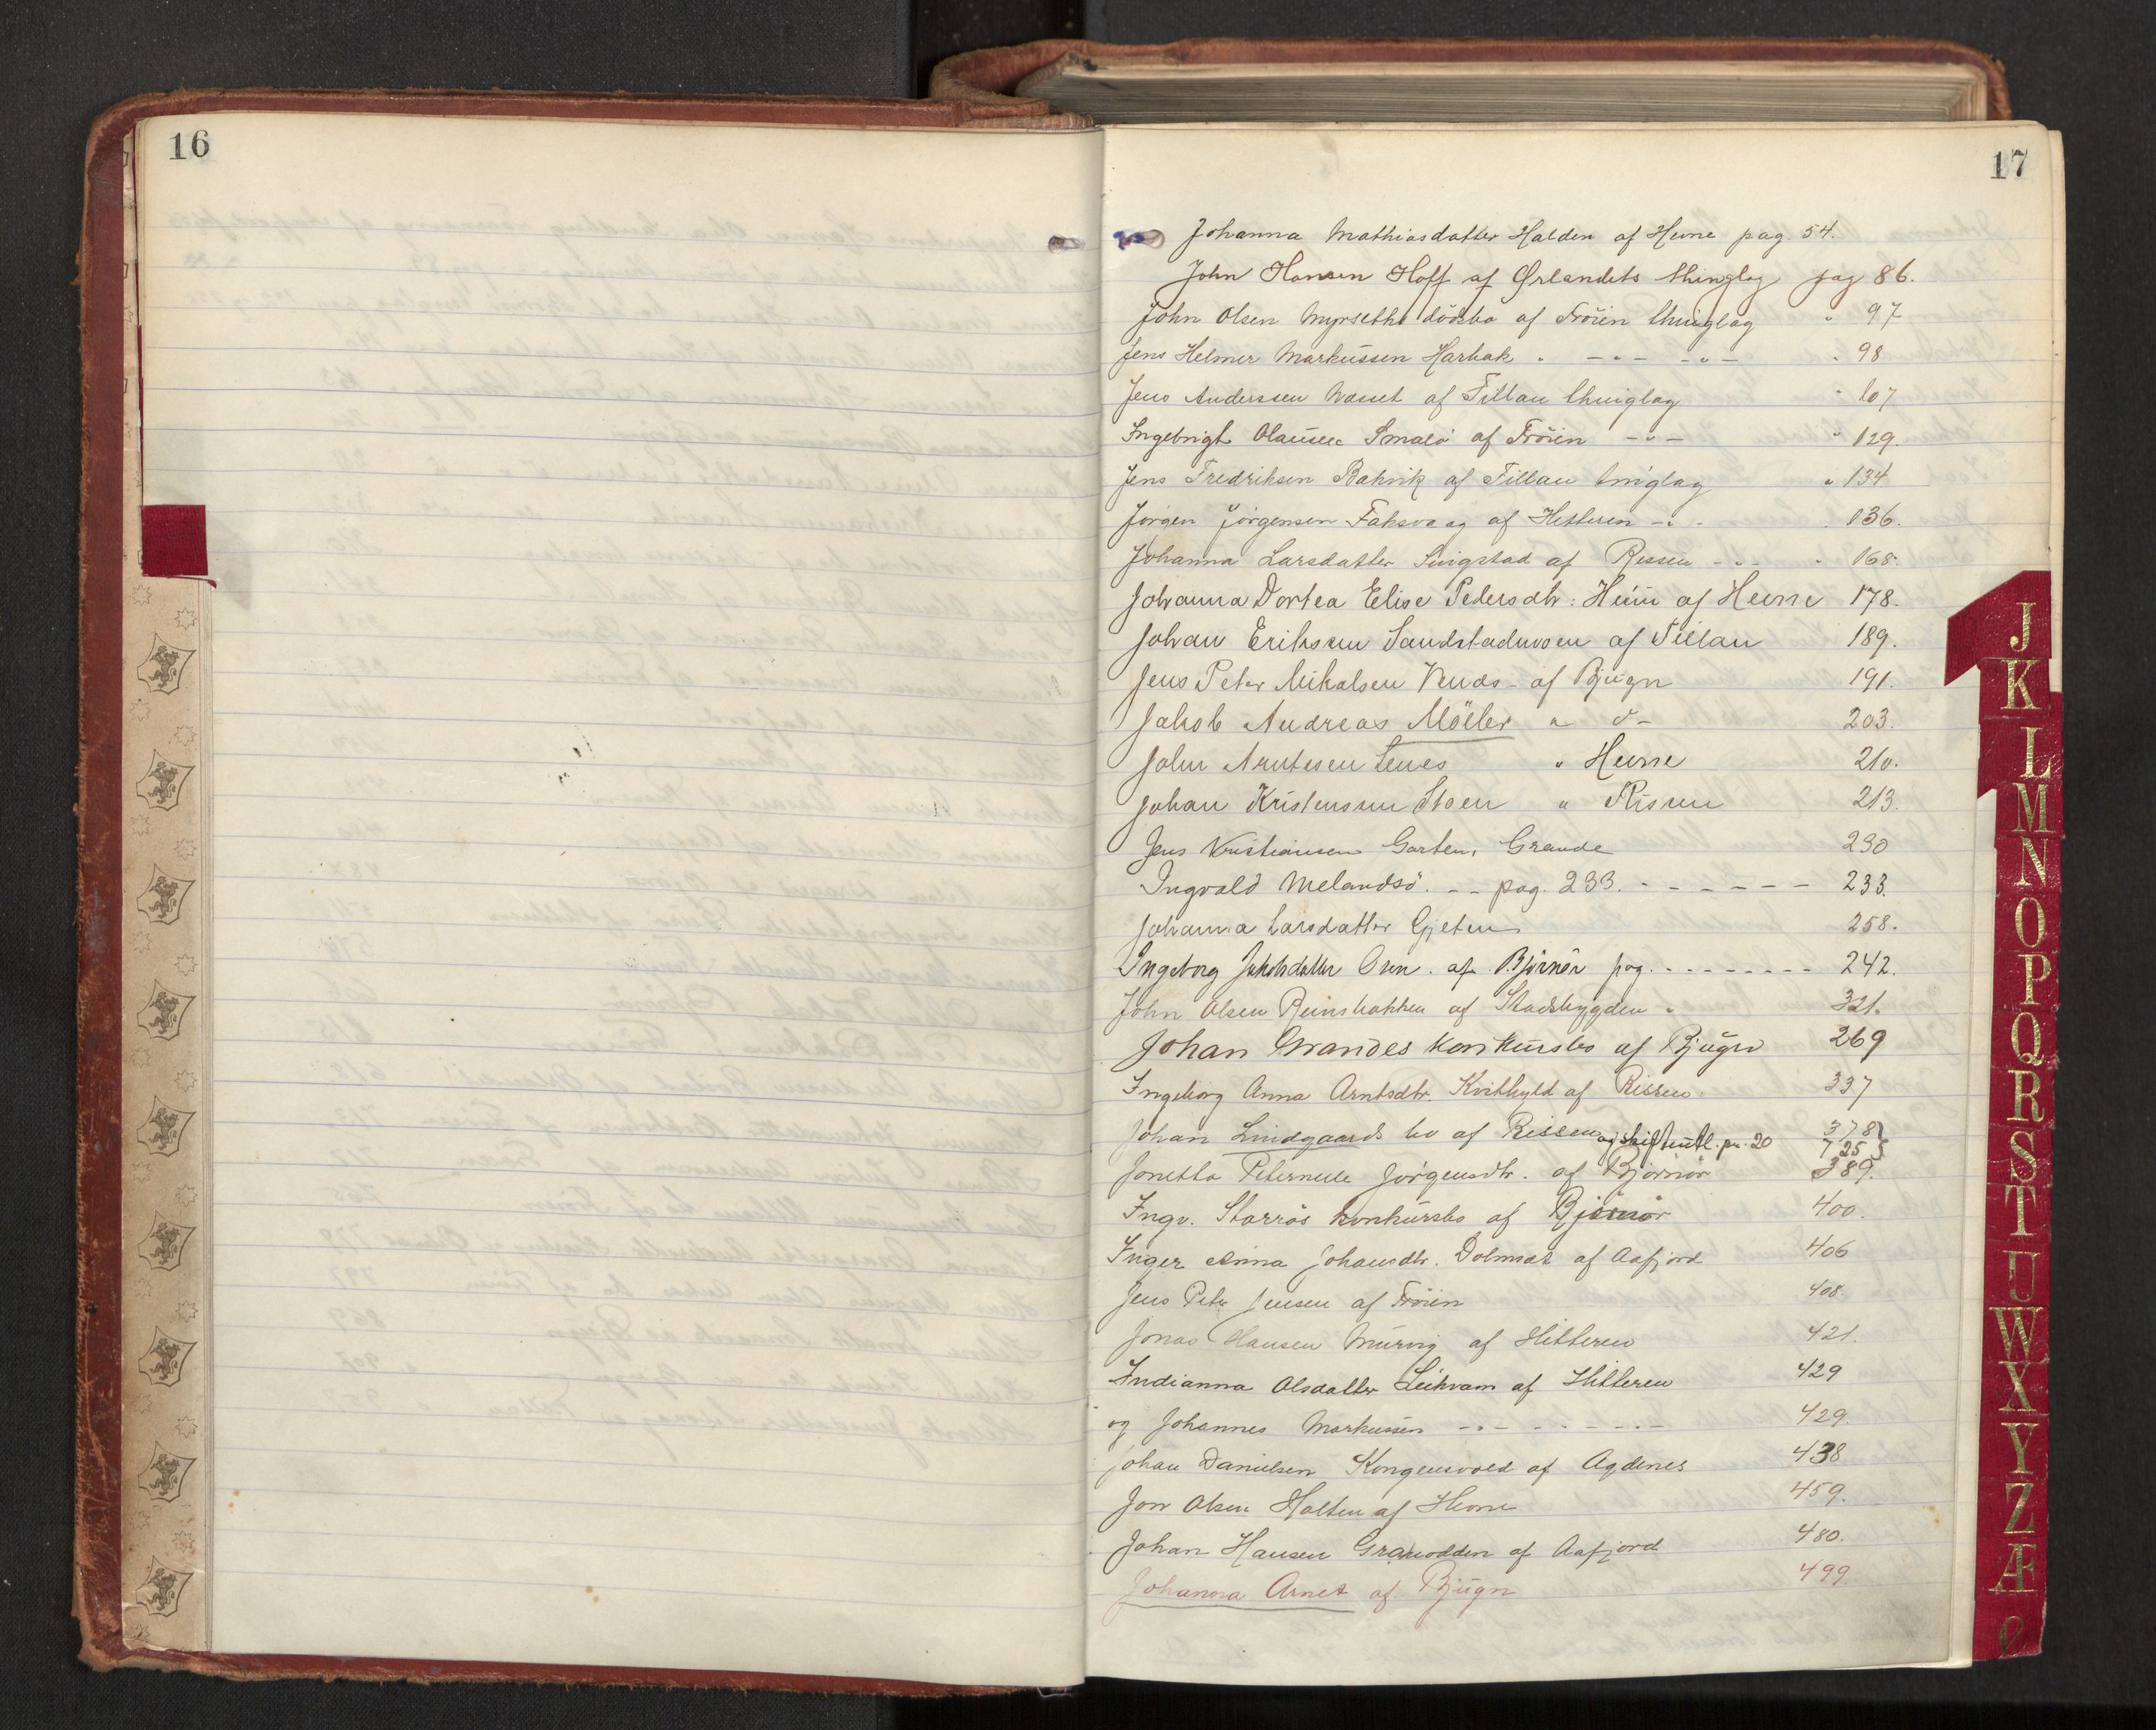 16
17
Johanna Mathiasdatter Halden af Hevne pag. 54.
John Hansen Hoff af Ørlandets thinglag pag 86.
John Olsen Myrseths dödsbo af Fröien thinglag " 97
Jens Helmer Markussen Harbak " - " - - " - " 98
Jens Anderssen Vasset af Fillan thinglag " 107
Ingebrigt Olausen Smalö af Fröien - " - " 129.
Jens Fredriksen Bakvik af Fillan tinglag " 134
Jörgen Jörgensen Faksvaag af Hitteren - " - 136.
Johanna Larsdatter Singstad af Rissen - " - " 168.
Johanna Dortea Elise Pedersdtr: Heim af Hevne 178.
Johan Eriksen Sandstadmoen af Fillan 189.
Jens Peter Mikalsen af Bjugn 191.
Jakob Andreas Möller " d- 203.
John Arntesen Lenes " Hevne 210.
Johan Kristensen Stoen " Rissen 213.
Jens Kristiansen Garten, Grande 230
Ingvald Melandsö. -- pag. 233. - - - - - - 233.
Johanna Larsdatter Gjeten 258.
Ingeborg Jakobsdatter Osen. af. Björnör pag. - - - - - - - - 242.
John Olsen Reinsbakken af Stadsbygden " 321.
Johan Grandes konkursbo af Bjugn 269
Ingeborg Anna Arntsdtr. Kvithyld af Rissen. 337
Johan Lindgaards bo af Rissen og skifteutl. pr. 20 378}
725}
Jonetta Peternelle Jørgensdtr. af Bjørnør 389.
Ingv. Starrös konkursbo af Bjørnør 400.
Inger Anna Johansdtr. Dolmset af Aafjord 406
Jens Peter Jensen af Fröien 408.
Jonas Hansen Murvig af Hitteren 421.
Indianna Olsdatter Leikvam af Hitteren 429
og Johannes Markussen - " - - " - - " - 429.
Johan Danielsen Kongensvold af Agdenes 438
Jon Olsen Holten af Hevne 459.
Johan Hansen Granodden af Aafjord 480.
Johanna Arnet af Bjugn 499.
J
K
L
M
N
O
P
Q
R
S
T
U
W
X
Y
Z
Æ
Ø